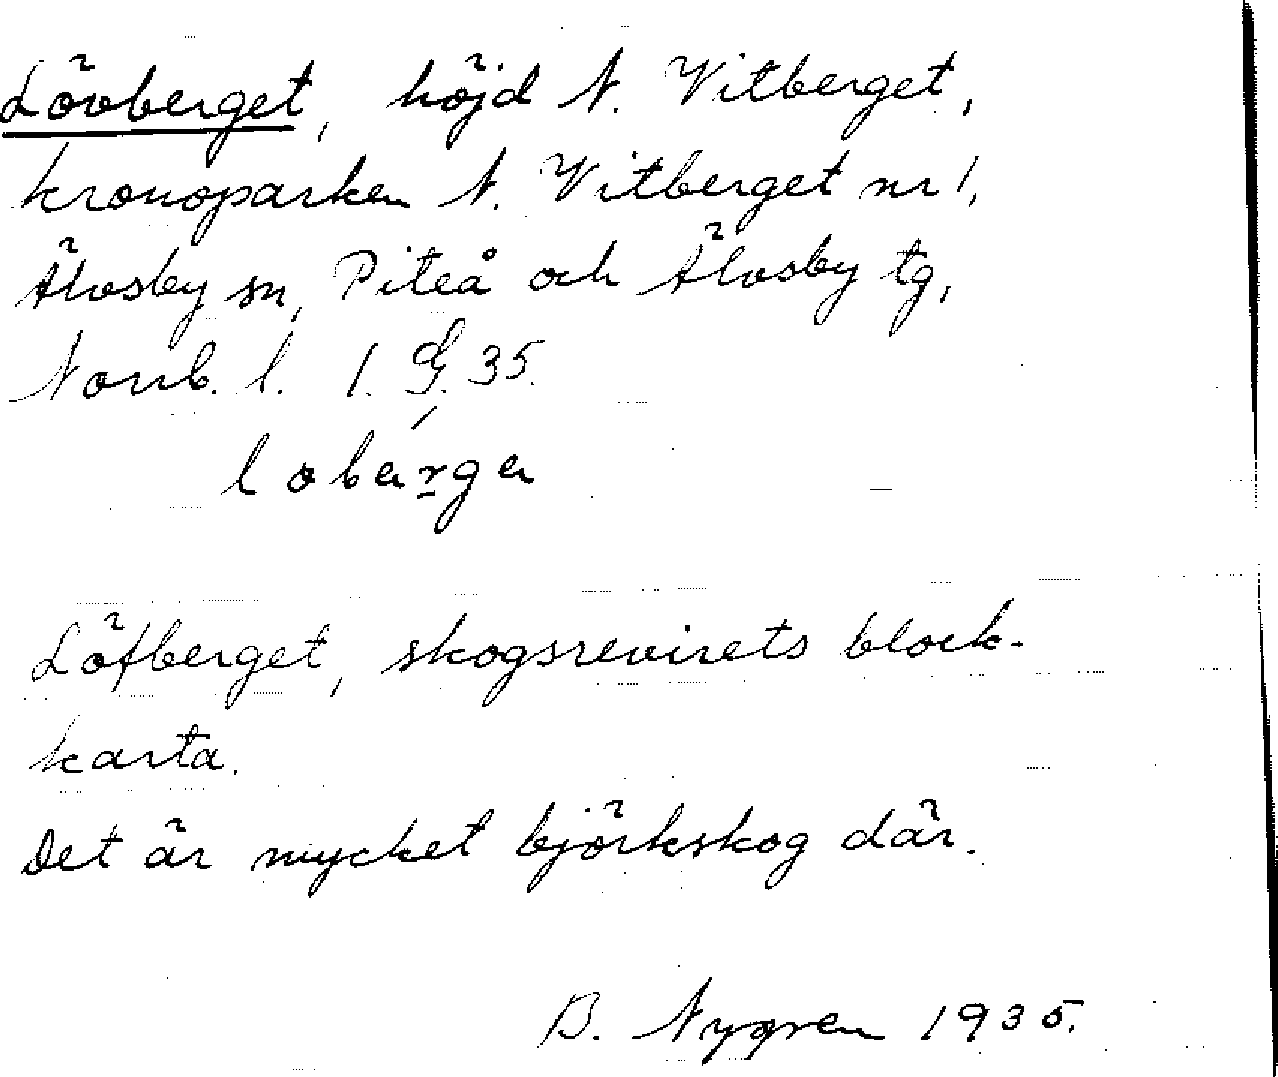 Lövberget, höjd N. Vitberget,
kronoparken N. Vitberget nr 1,
Älvsby sn, Piteå och Älvsby tg,
Norrb. l. 1. G. 35.
loberga
Löfberget, skogsrevirets block-
karta.
Det är mycket björkskog där.
B. Nygren 1935.